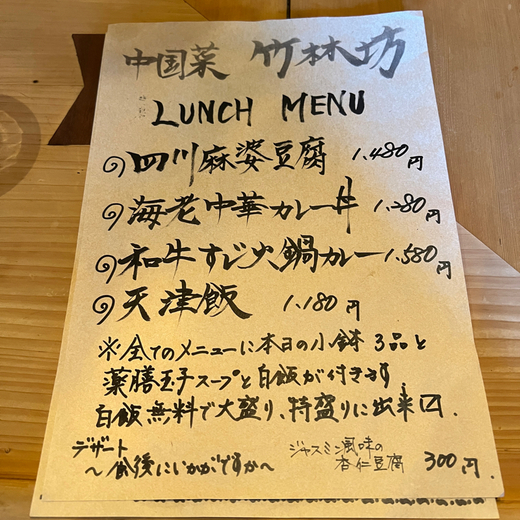 中国菜 竹林坊
LUNCH MENU
四川麻婆豆腐 1,480円
海老中華カレー丼 1,280円
和牛すじ火鍋カレー 1,580円
天津飯 1,180円
※全てのメニューに本日の小鉢3品と
薬膳玉子スープと白飯が付きます
白飯無料で大盛り、特盛りに出来〼.
デザート
～食後にいかがですか～
ジャスミン風味の
杏仁豆腐 300円.